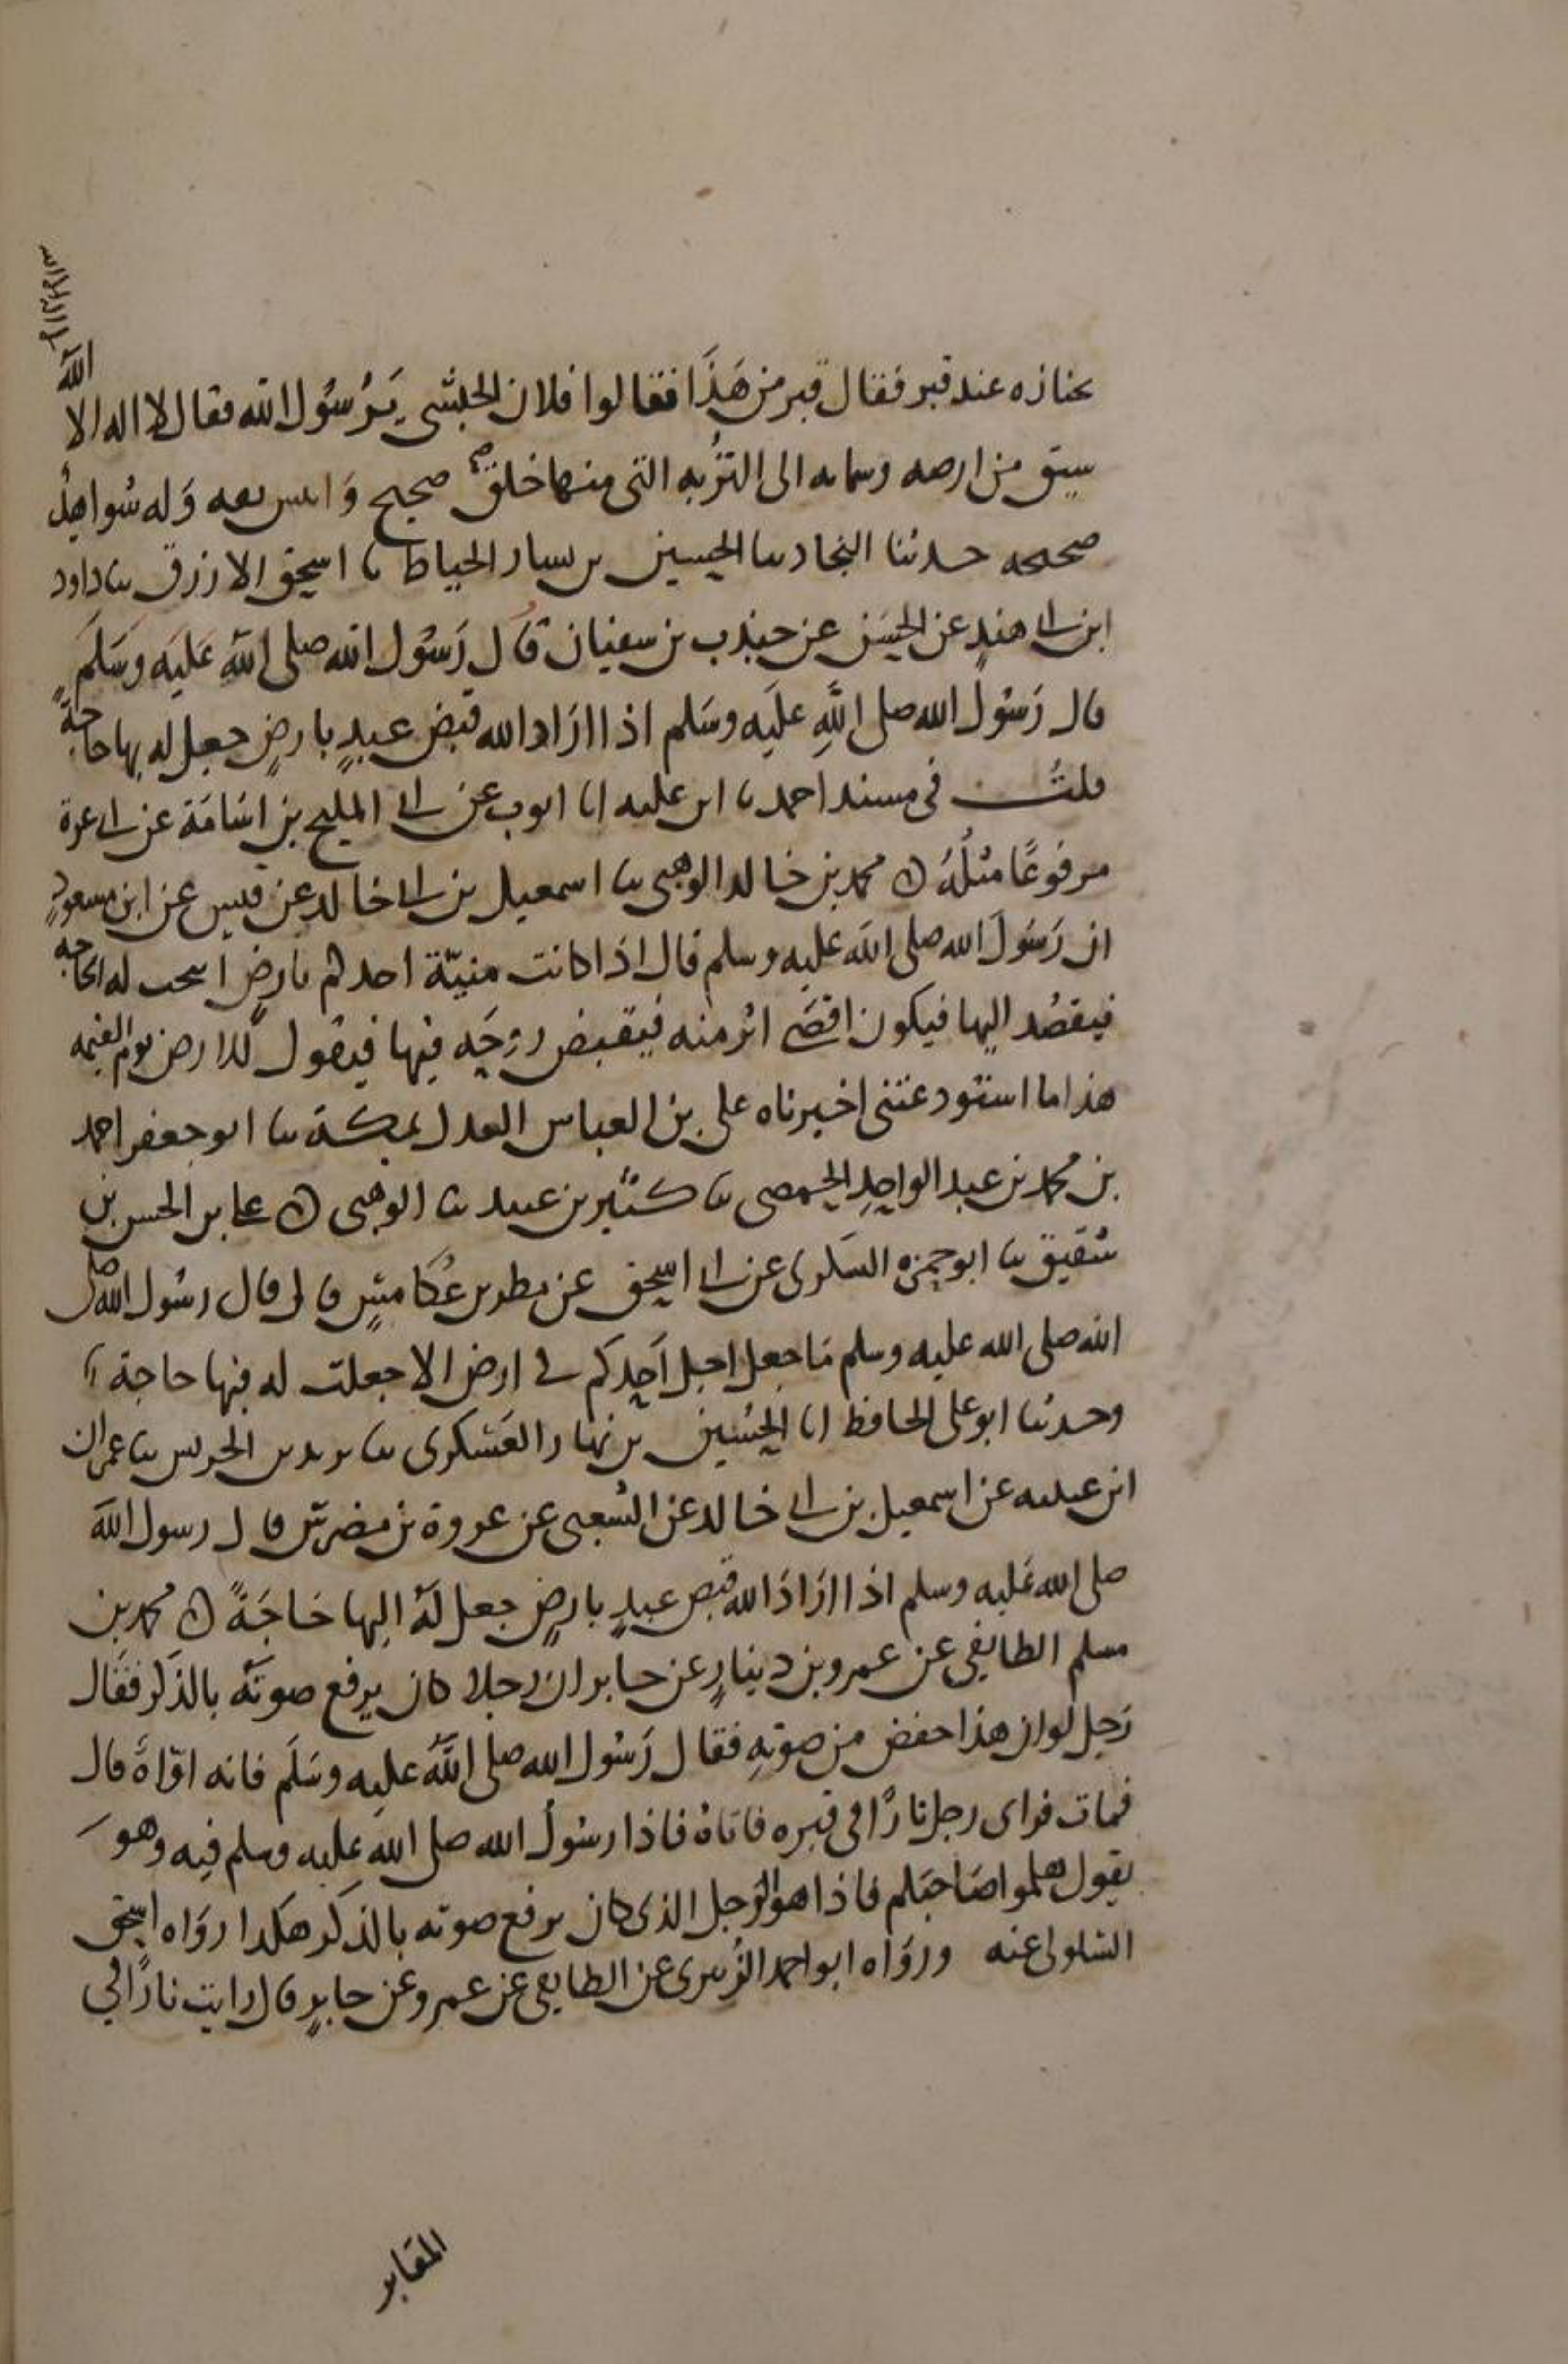 بجنازه عند قبر فقال قبر من هَذَا فقالوا فلان الحبشي يَرسُول الله فقال لا اله الا الله
سيق من ارضه وسمايه الى التُربه التى منها خلق صحيح وَانيس ثقه وَله شواهدُ
صحيحه حدثنا النجاد ثنا الحسين بن بسار الخياط ثنا اسحق الازرق ثنا داود
ابن ابي هندٍ عن الحسَن عن جندب بن سفيان قال رَسُول الله صلى اللَّهِ عَليَه وسَلمَ
قال رَسُول الله صلى اللَّهِ عليَه وسَلم اذا ارَاد الله قبض عبدٍ بارضٍ جعل له بها حاجةً
قلتُ في مسند احمد ثنا ابن عليه انا ايوب عن ابي المليح بن اسَامَة عن ابي عزة
مرفوعًا مثلُهُ ن محمد بن خالد الوهبي ثنا اسمعيل بن ابي خالد عن قيس عن ابن مسعودٍ
ان رَسُولَ الله صلى الله عليه وسلم قال اذا كانت منيّة احدكم بارضٍ اتيحت له الحاجه
فيقصُد اليها فيكون اقصَى اثر منه فيقبض روحَه فيها فيقول الارض يوم القيمه
هذا ما استودعتنى اخبرناه على بن العباس العدل بمكة ثنا ابو جعفر احمد
بن محمد بن عبد الواحِدِ الحمصى ثنا كثير بن عبيد ثنا الوهبى ن على بن الحسن بن
شقيق ثنا ابو حمزه السكرى عن ابي اسحق عن مطر بن عُكامسٍ قال قال رسُول الله صلى
الله صلى الله عليه وسلم مَا جعل اجل اَحدِكم في ارض الا جعلت له فيها حاجة
وحدثنا ابو على الحافظ انا الحُسَين بن نهار العَسْكرى ثنا يزيد بن الحريس ثنا عمران
ابن عيينه عن اسمعيل بن ابي خالد عن الشعبى عن عروة بن مضرس قال رسول الله
صلى الله عَليه وسلم اذا ارَادَ الله قبض عبدٍ بارضٍ جعل لهُ اليها حَاجَةً ن محمد بن
مسلم الطايفى عن عمرو بن دينارٍ عن جابر ان رجلا كان يرفع صوتَهُ بالذكر فقَال
رَجل لو ان هذا خفض من صوتهِ فقال رَسُول الله صلى اللَّهُ عليه وسَلَم فانه اوّاهٌ قال
فمات فراى رجل نارًا فى قبره فاتاهُ فاذا رسُولُ الله صلى الله عليه وسلم فيه وهوَ
يقول هلموا صَاحبَكم فاذا هو الرجل الذى كان يرفع صوته بالذكر هكذا روَاه اسحق
السلولى عنه وروَاه ابو احمد الزُبيرى عن الطايفى عن عمرو عن جابرٍ قال رايت نارًا في
المقابر